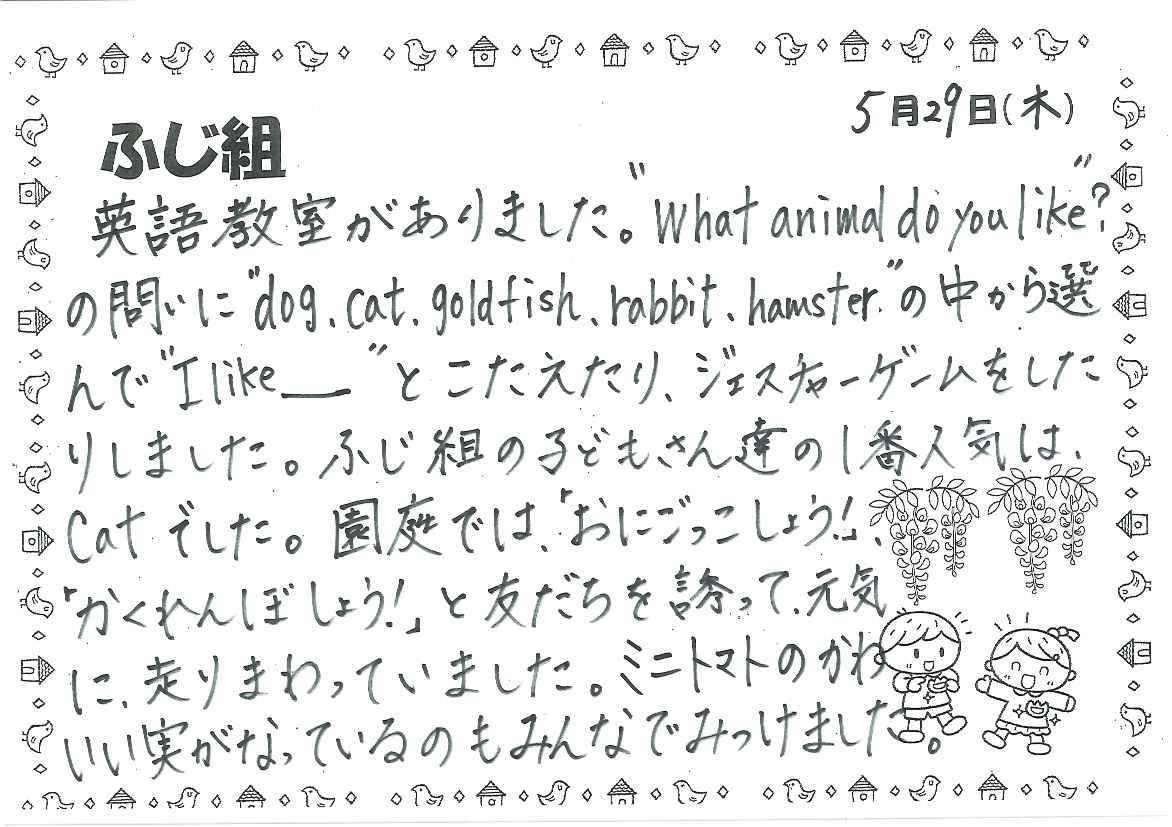 5月29日(木)
ふじ組
英語教室がありました。"What animal do you like"?
の問いに"dog、cat、goldfish、rabbit、hamster."の中から選
んで"I like＿"とこたえたり、ジェスチャーゲームをした
りしました。ふじ組の子どもさん達の1番人気は、
Catでした。園庭では、「おにごっこしょう!」、
「かくれんぼしょう!」と友だちを誘って、元気
に、走りまわっていました。ミニトマトのかわ
いい実がなっているのもみんなでみつけました。